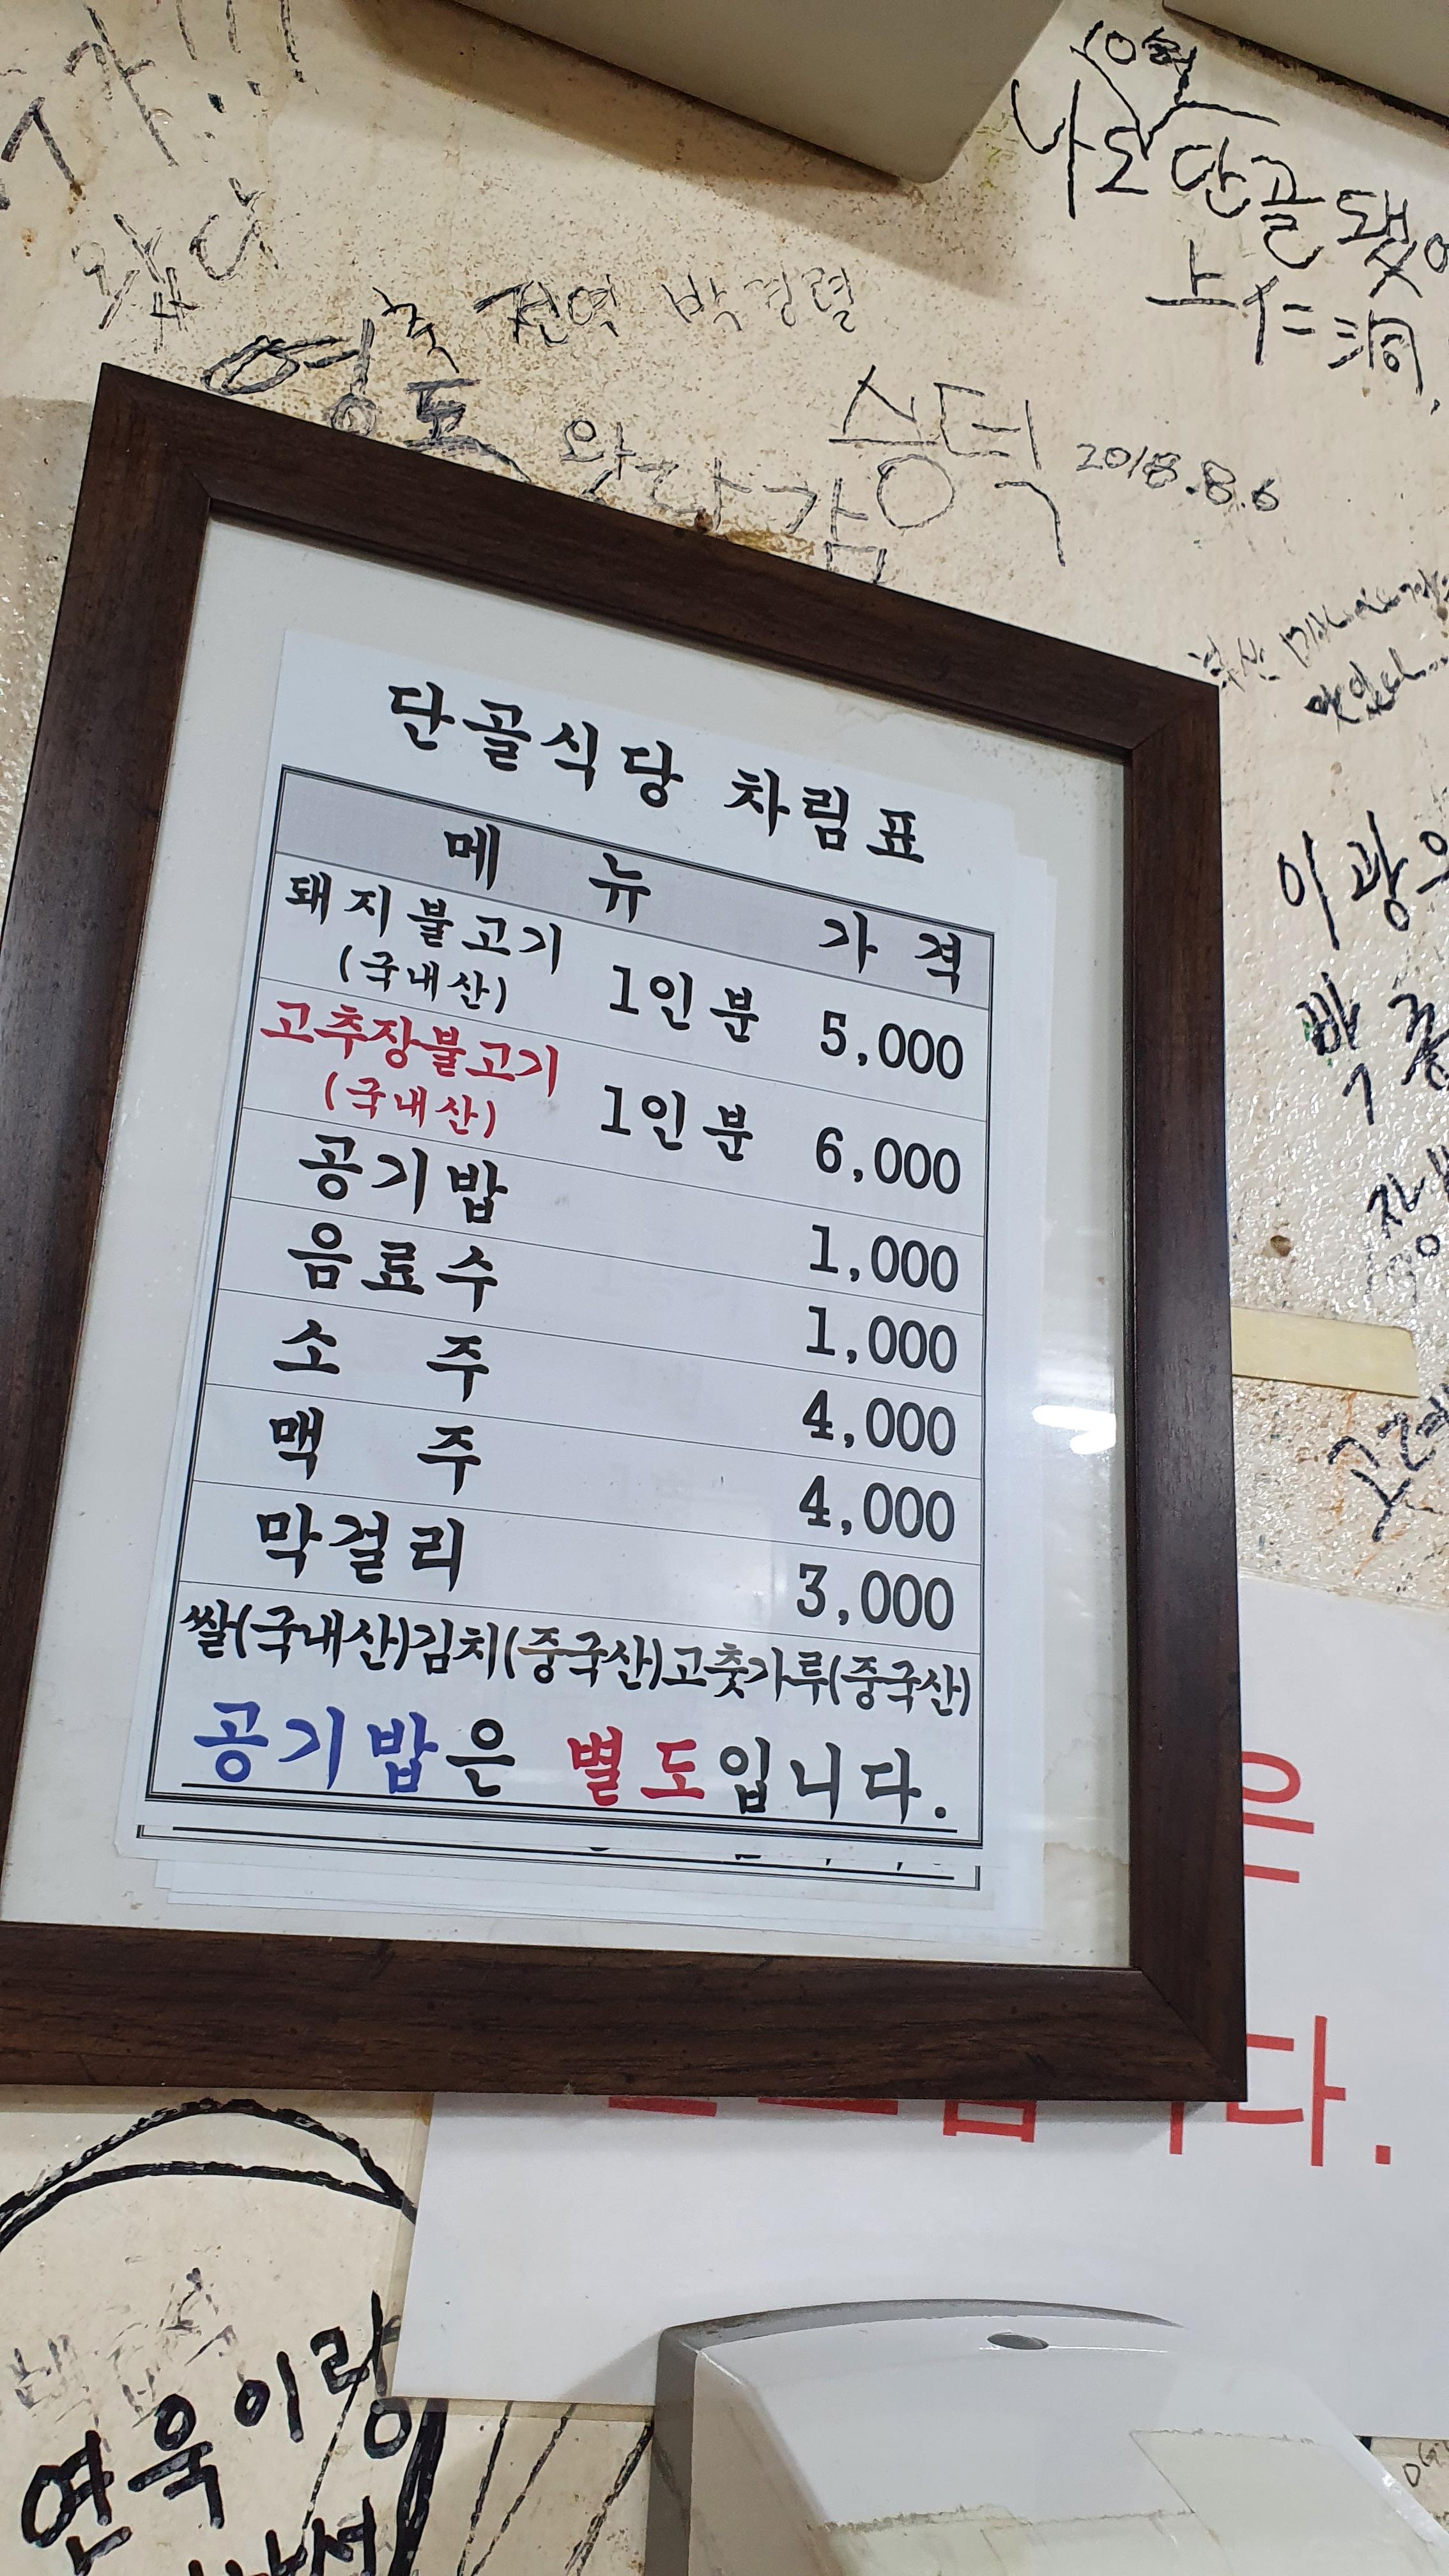 가!!!
왔다
10월
나도 단골 됐어
上仁洞
박경렬
영도 왔다감
승덕 2018.8.6
부산
단골식당 차림표
메 뉴 가 격
돼지불고기 (국내산) 1인분 5,000
고추장불고기 (국내산) 1인분 6,000
공기밥 1,000
음료수 1,000
소 주 4,000
맥 주 4,000
막걸리 3,000
쌀(국내산)김치(중국산)고춧가루(중국산)
공기밥은 별도입니다.
이광
박
은
다.
연욱이랑